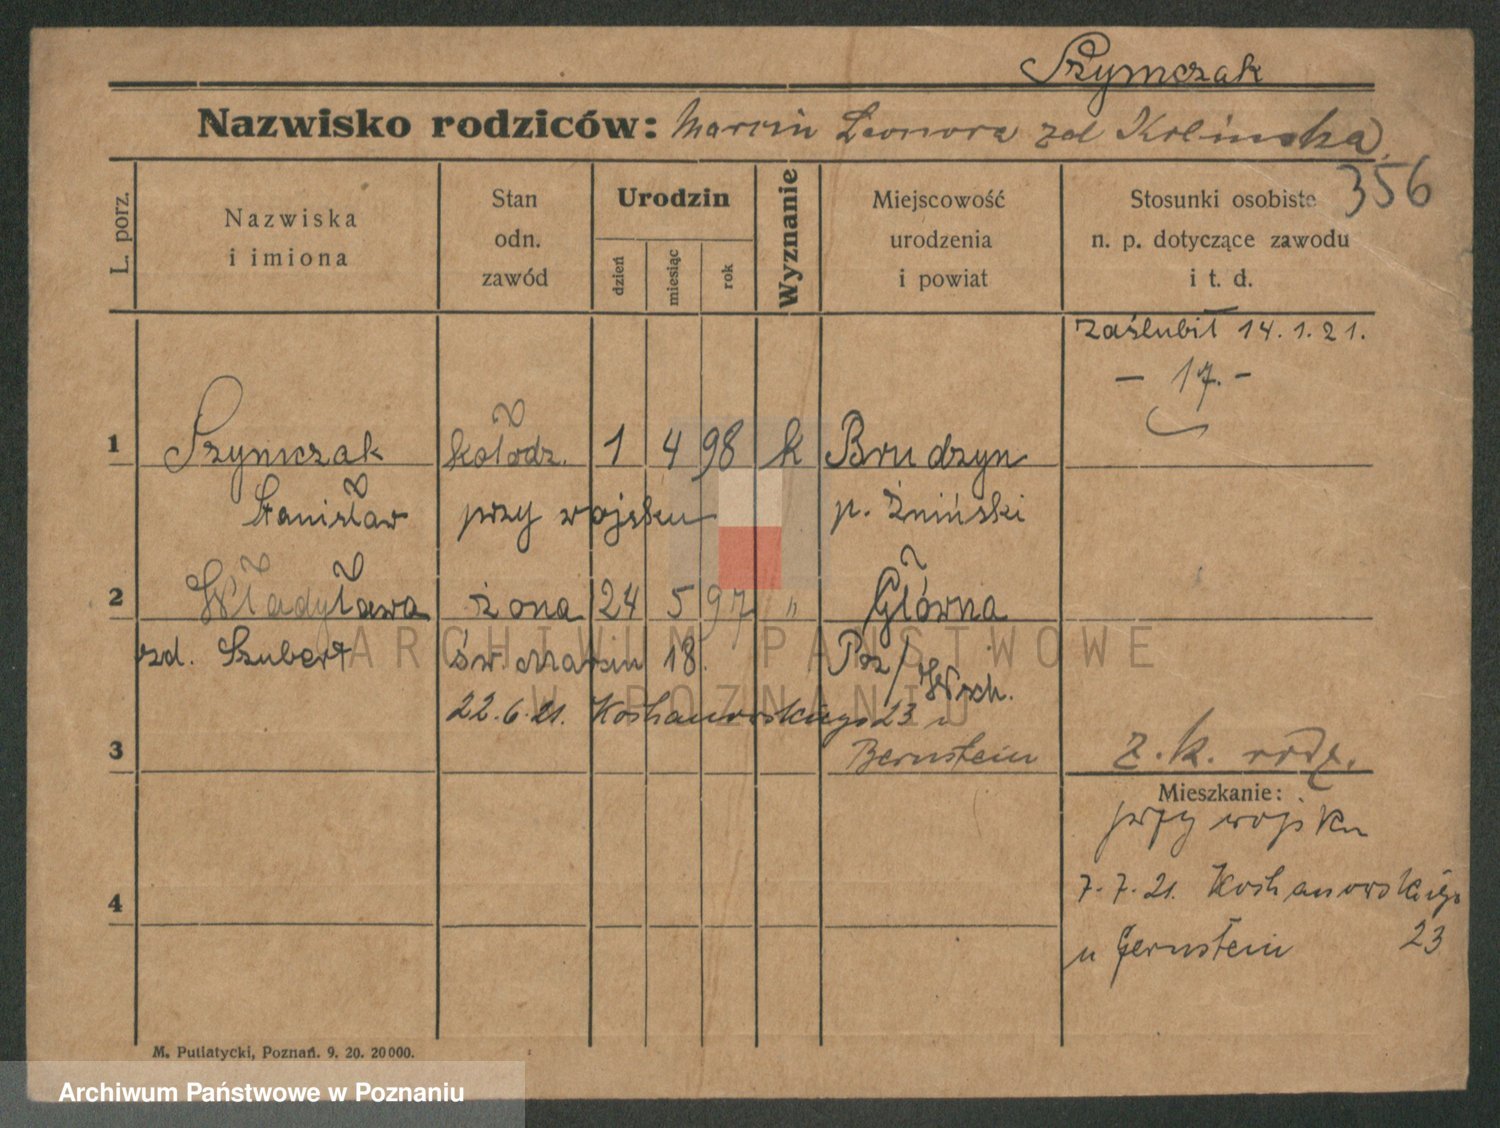 Szymczak
Nazwisko rodziców: Marcin Leonora zd Kolinska
356
L. porz.
Nazwiska i imiona
Stan odn. zawód
Urodzin
dzień
miesiąc
rok
Wyznanie
Miejscowość urodzenia i powiat
Stosunki osobiste n. p. dotyczące zawodu i t. d.
zaślubił 14.1.21.
- 17. -
1 Szymczak kołodz. 1 4 98 k Brudzyn
Stanisław przy wojsku p. Żniński
2 Władysława żona 24 5 97 " Główna
zd. Szubert św. Marcin 18. Poz/Wsch.
22.6.21. Kochanowskiego 23 u
Bernstein
3
z. k. rodz.
Mieszkanie:
przy wojsku
7.7.21. Kochanowskiego
23
u Bernstein
4
M. Putiatycki, Poznań. 9. 20. 20000.
ARCHIWUM PAŃSTWOWE
W POZNANIU
Archiwum Państwowe w Poznaniu